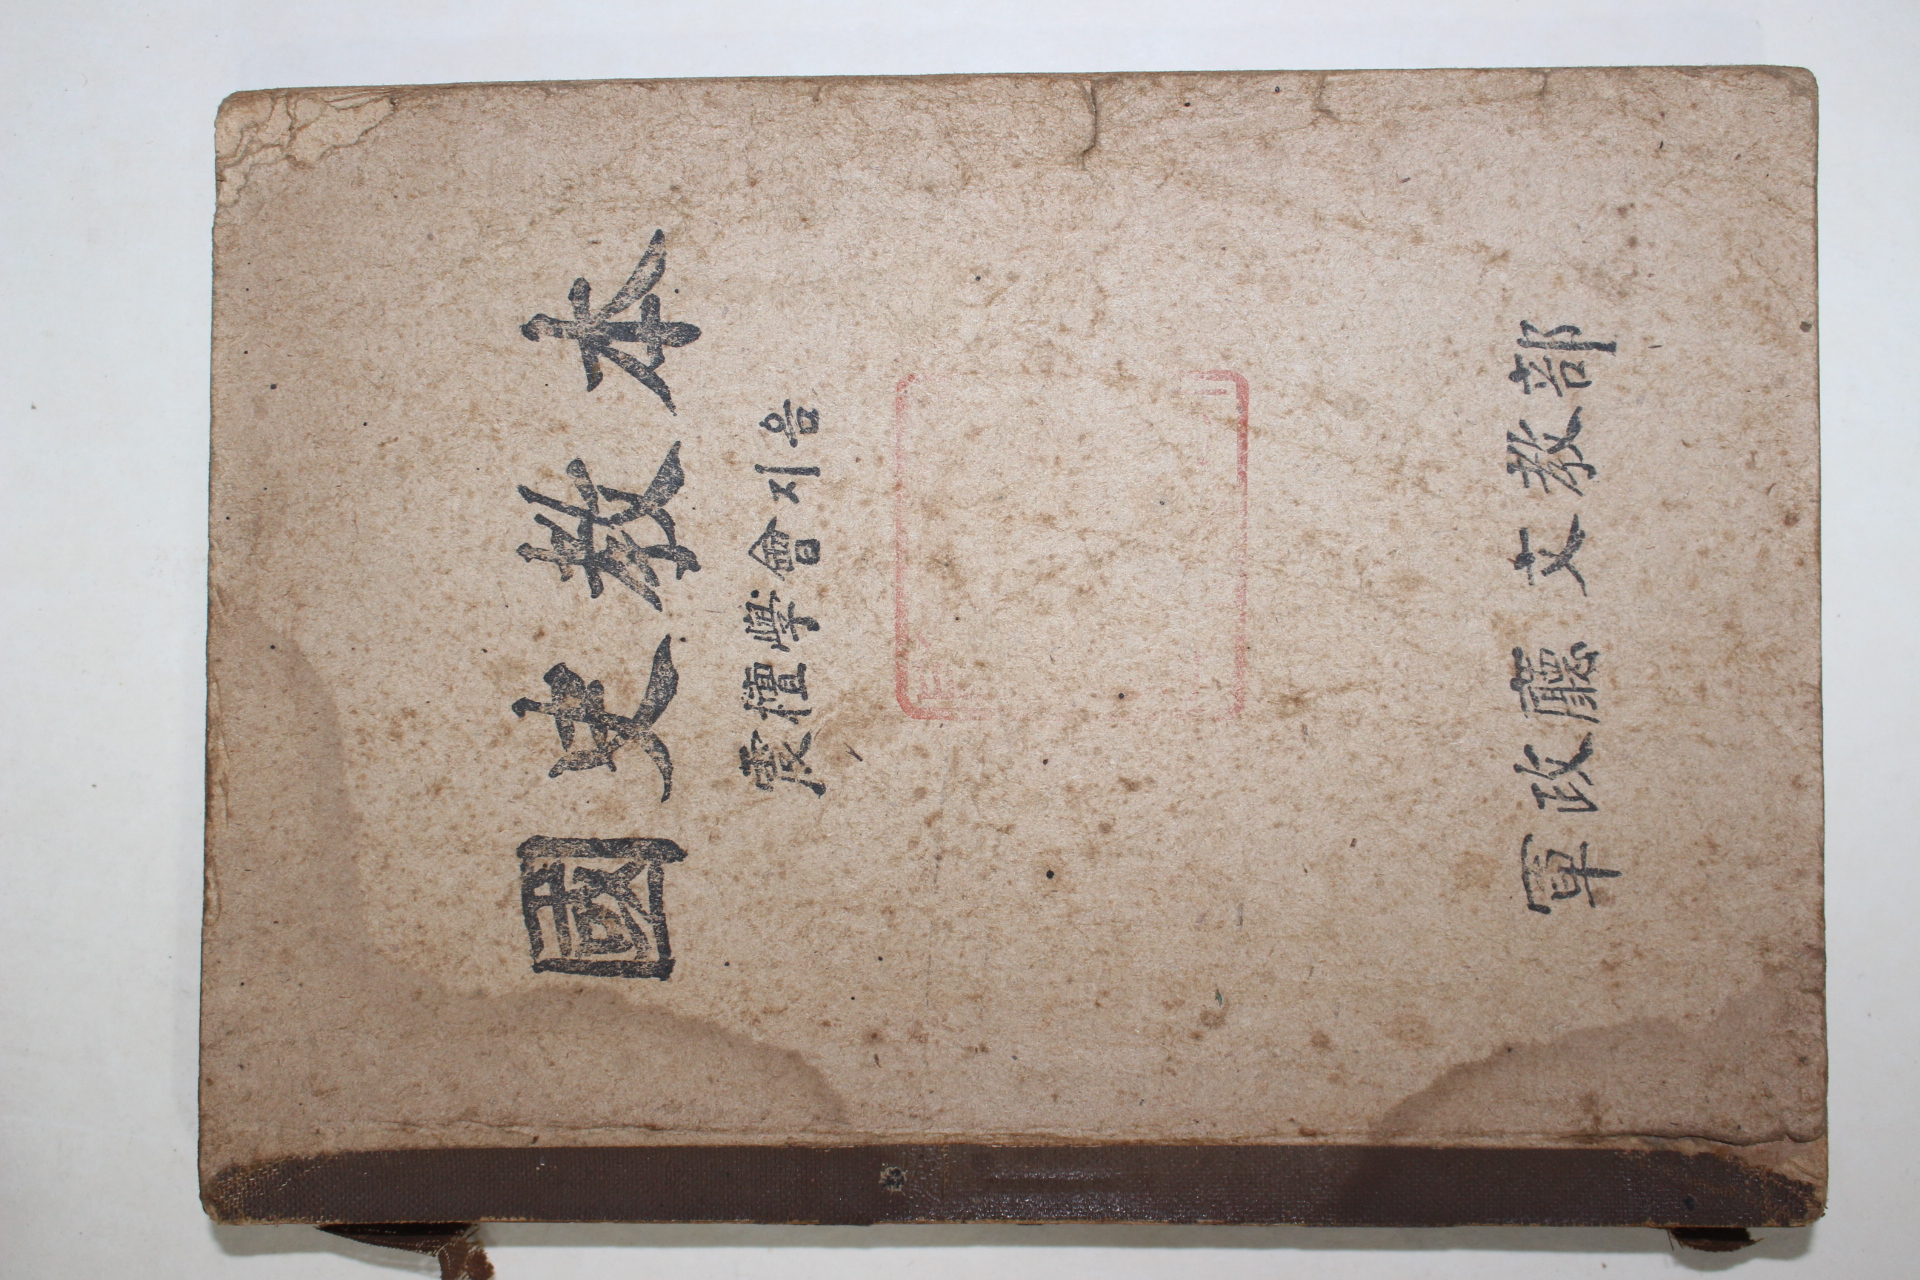 國史教本
震檀學會지음
軍政廳 文教部